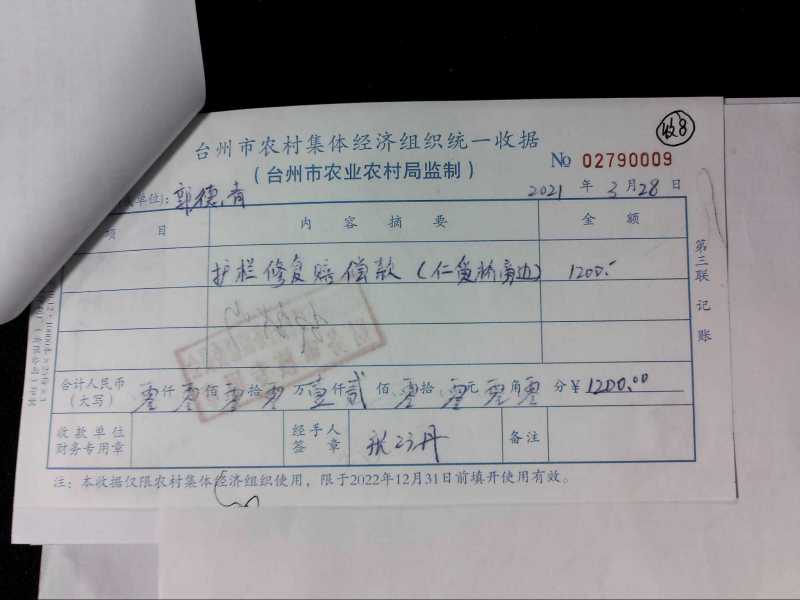 收8
台州市农村集体经济组织统一收据
（台州市农业农村局监制）
No 02790009
单位)：郭德青 2021 年 3 月 28 日
项 目 内 容 摘 要 金 额
护栏修复赔偿款（仁 桥旁边） 1200.-
第三联 记账
合计人民币（大写） 零仟零佰零拾零万壹仟贰佰零拾零元零角零分 ￥1200.00
收款单位财务专用章 经手人签章 张 丹 备注
注：本收据仅限农村集体经济组织使用，限于2022年12月31日前填开使用有效。